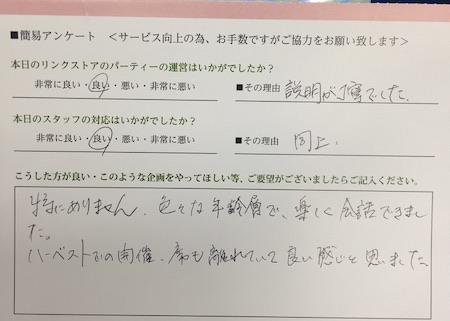 ■簡易アンケート <サービス向上の為、お手数ですがご協力をお願い致します>
本日のリンクストアのパーティーの運営はいかがでしたか?
非常に良い・良い・悪い・非常に悪い ■その理由 説明が丁寧でした。
本日のスタッフの対応はいかがでしたか?
非常に良い・良い・悪い・非常に悪い ■その理由 同上.
こうした方が良い・このような企画をやってほしい等、ご要望がございましたらご記入ください。
特にありません、色々な年齢層で、楽しく会話できまし
た。
ハーベストでの開催、席も離れていて良い感じと思いました。